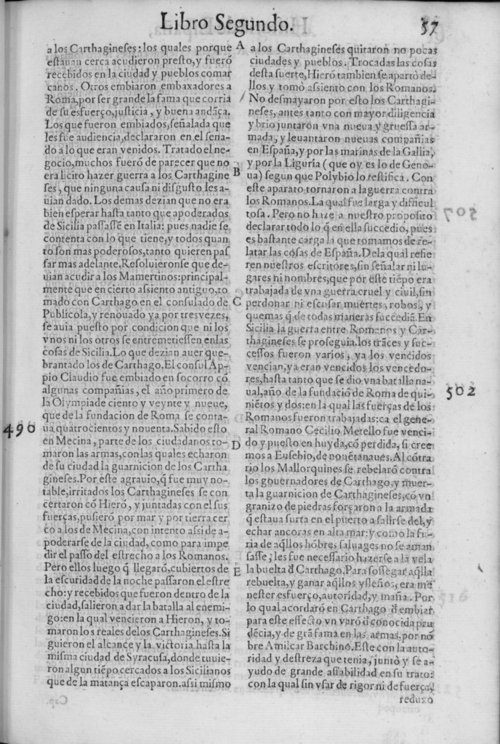 Libro Segundo.
57
a los Carthagineses: los quales porque
estauan cerca acudieron presto, y fueró
recebidos en la ciudad y pueblos comar
canos. Otros embiaron embaxadores a
Roma, por ser grande la fama que corria
de su esfuerço, justicia, y buena andãça.
Los que fueron embiados, señalada que
les fue audiencia, declararon en el sena-
do a lo que eran venidos. Tratado el ne-
gocio, muchos fueró de parecer que no
era licito hazer guerra a los Carthagine
ses, que ninguna causa ni disgusto les a-
uian dado. Los demas dezian que no era
bien esperar hasta tanto que apoderados
de Sicilia passassē en Italia: pues nadie se
contenta con lo que tiene, y todos quan
to son mas poderosos, tanto quieren pas
sar mas adelante. Resoluieronse que de-
uian acudir a los Mamertinos: principal-
mente que en cierto assiento antiguo, to
mado con Carthago en el consulado de
Publicola, y renouado ya por tres vezes,
se auia puesto por condicion que ni los
vnos ni los otros se entremetiessen en las
cosas de Sicilia. Lo que dezian auer que-
brantado los de Carthago. El consul Ap-
pio Claudio fue embiado en socorro có
algunas compañias, el año primero de
la Olympiade ciento y veynte y nueue,
que de la fundacion de Roma se conta-
ua quatrocientos y nouenta. Sabido esto
en Mecina, parte de los ciudadanos to-
maron las armas, con las quales echaron
de su ciudad la guarnicion de los Cartha
gineses. Por este agrauio, q̃ fue muy no-
table, irritados los Carthagineses se con
certaron có Hieró, y juntadas con el sus
fuerças, pusieró por mar y por tierra cer
co a los de Mecina, con intento assi de a-
poderarse de la ciudad, como para impe
dir el passo del estrecho a los Romanos.
Pero ellos luego q̃ llegaró, cubiertos de
la escuridad de la noche passaron el estre
cho: y recebidos que fueron dentro de la
ciudad, salieron a dar la batalla al enemi-
go: en la qual vencieron a Hieron, y to-
maron los reales de los Carthagineses. Si
guieron el alcance y la victoria hasta la
misma ciudad de Syracusa, donde tuuie-
ron algun tiēpo cercados a los Sicilianos
que de la matança escaparon. assi mismo
A
B
C
D
E
490
a los Carthagineses quitaron no pocas
ciudades y pueblos. Trocadas las cosas
desta suerte, Hieró tambien se apartó de-
llos y tomó assiento con los Romanos.
No desmayaron por esto los Carthagi-
neses, antes tanto con mayor diligencia
y brio juntarón vna nueua y gruessa ar-
mada, y leuantaron nueuas compañias
en España, y por las marinas de la Gallia,
y por la Liguria (que oy es lo de Geno-
ua) segun que Polybio lo testifica. Con
este aparato tornaron a la guerra contra
los Romanos. La qual fue larga y dificul
tosa. Pero no haze a nuestro proposito
declarar todo lo q̃ en ella succedio, pues
es bastante carga la que tomamos de re-
latar las cosas de España. De la qual refie
ren nuestros escritores, sin señalar ni lu-
gares ni nombres, que por este tiēpo era
trabajada de vna guerra cruel y ciuil, sin
perdonar ni escusar muertes, robos, y
quemas q̃ de todas maneras succediã. En
Sicilia la guerra entre Romanos y Car-
thagineses se proseguia. los trãces y suc-
cessos fueron varios, ya los vencidos
vencian, ya eran vencidos los vencedo-
res, hasta tanto que se dio vna batalla na-
ual, año de la fundació de Roma de qui-
niētos y dos: en la qual las fuerças de los
Romanos fueron trabajadas: ca el gene-
ral Romano Cecilio Metello fue venci-
do y puesto en huyda, có perdida, si cree
mos a Eusebio, de nouēta naues. Al cótra
rio los Mallorquines se rebelaró contra
los gouernadores de Carthago, y muer-
ta la guarnicion de Carthagineses, có vn
granizo de piedras forçaron a la armada
q̃ estaua surta en el puerto a salirse del, y
echar ancoras en alta mar: y como la fu-
ria de aq̃llos hóbres saluages no se aman
sasse, les fue necessario hazerse a la vela
la buelta ď Carthago. Para sossegar aq̃lla
rebuelta, y ganar aq̃llos ysleños, era me
nester esfuerço, autoridad, y maña. Por
lo qual acordaró en Carthago ď embiar
para este effecto vn varó ď conocida pru
dēcia, y de grã fama en las armas, por nó
bre Amilcar Barchino. Este con la auto-
ridad y destreza que tenia, juntó y se a-
yudo de grande affabilidad en su trato:
con la qual sin vsar de rigor ni de fuerça,
reduxo
502